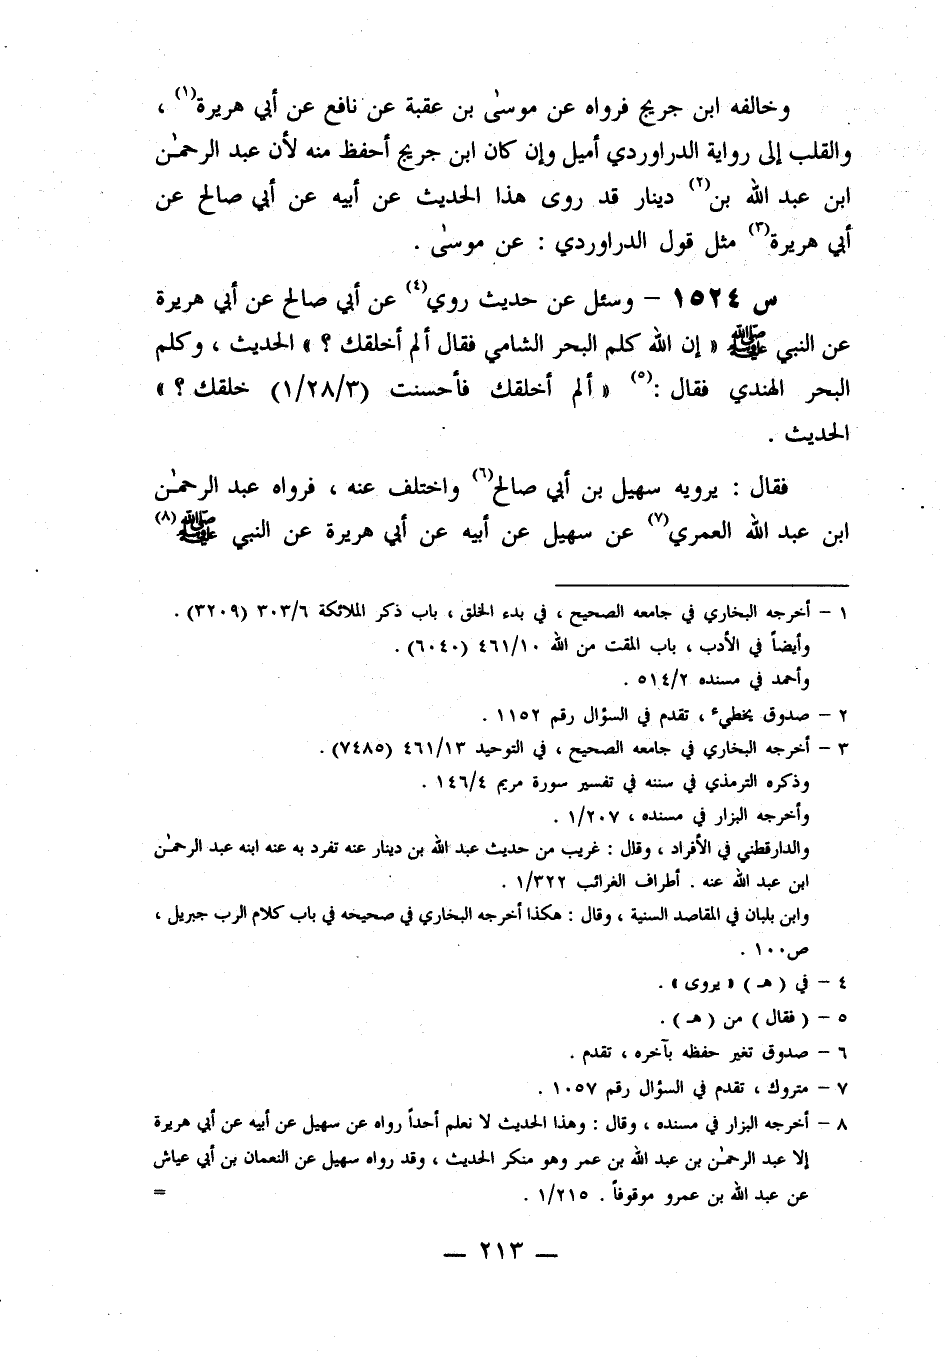 وخالفه ابن جريج فرواه عن موسىٰ بن عقبة عن نافع عن أبي هريرة(١) ،
والقلب إلى رواية الدراوردي أميل وإن كان ابن جريج أحفظ منه لأن عبد الرحمـٰن
ابن عبد الله بن(٢) دينار قد روى هذا الحديث عن أبيه عن أبي صالح عن
أبي هريرة(٣) مثل قول الدراوردي : عن موسىٰ .
س ١٥٢٤ – وسئل عن حديث روي(٤) عن أبي صالح عن أبي هريرة
عن النبي ﷺ « إن الله كلم البحر الشامي فقال ألم أخلقك ؟ » الحديث ، وكلم
البحر الهندي فقال :(٥) « ألم أخلقك فأحسنت (١/٢٨/٣) خلقك ؟ »
الحديث .
فقال : يرويه سهيل بن أبي صالح(٦) واختلف عنه ، فرواه عبد الرحمـٰن
ابن عبد الله العمري(٧) عن سهيل عن أبيه عن أبي هريرة عن النبي ﷺ(٨)
١ – أخرجه البخاري في جامعه الصحيح ، في بدء الخلق ، باب ذكر الملائكة ٣٠٣/٦ (٣٢٠٩) .
وأيضاً في الأدب ، باب المقت من الله ٤٦١/١٠ (٦٠٤٠) .
وأحمد في مسنده ٥١٤/٢ .
٢ – صدوق يخطيء ، تقدم في السؤال رقم ١١٥٢ .
٣ – أخرجه البخاري في جامعه الصحيح ، في التوحيد ٤٦١/١٣ (٧٤٨٥) .
وذكره الترمذي في سننه في تفسير سورة مريم ١٤٦/٤ .
وأخرجه البزار في مسنده ، ١/٢٠٧ .
والدارقطني في الأفراد ، وقال : غريب من حديث عبد الله بن دينار عنه تفرد به عنه ابنه عبد الرحمـٰن
ابن عبد الله عنه . أطراف الغرائب ١/٣٢٢ .
وابن بلبان في المقاصد السنية ، وقال : هكذا أخرجه البخاري في صحيحه في باب كلام الرب جبريل ،
ص١٠٠ .
٤ – في ( هـ ) « يروى » .
٥ – ( فقال ) من ( هـ ) .
٦ – صدوق تغير حفظه بآخره ، تقدم .
٧ – متروك ، تقدم في السؤال رقم ١٠٥٧ .
٨ – أخرجه البزار في مسنده ، وقال : وهذا الحديث لا نعلم أحداً رواه عن سهيل عن أبيه عن أبي هريرة
إلا عبد الرحمـٰن بن عبد الله بن عمر وهو منكر الحديث ، وقد رواه سهيل عن النعمان بن أبي عياش
عن عبد الله بن عمرو موقوفاً . ١/٢١٥ . =
— ٢١٣ —